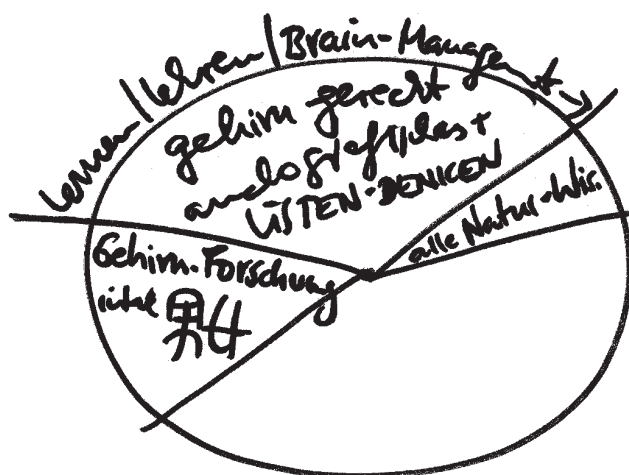 lernen/lehren/Brain-Management
gehirn gerecht
analograffitiplus +
LISTEN-DENKEN
alle Natur-Wis.
Gehirn-Forschung